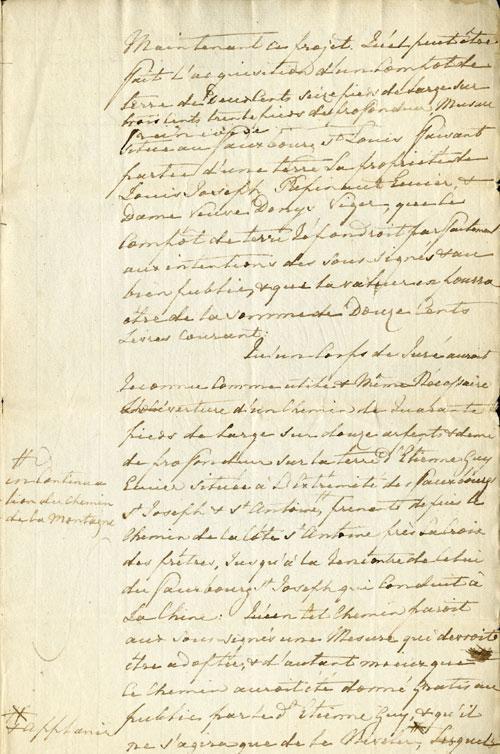 Maintenant ce projet. Qu'il peut être
fait l'acquisition d'un Compôt de
terre de Deux Cents seize pieds de large sur
trois cents trente pieds de profondeur, Mesure
située au fauxbourg St Louis faisant
partie d'une terre la propriété de
Louis Joseph Papineau Ecuier, &
Dame Veuve Denys Viger, que le
Compôt de terre répondroit parfaitement
aux intentions des sous signés & au
bien public, & que la valeur en pourra
être de la somme de Douze Cents
Livres courant.
Qu'un Corps de Juré auroit
reconnu comme utile & Même Nécessaire
l'ouverture d'un Chemin de Quarante
pieds de Large sur douze arpents & demi
de profondeur sur la terre d'Etienne Guy
Ecuier située à l'extrémité des fauxbourgs
St Joseph & St Antoine, # prenant depuis le
Chemin de la Côte St Antoine près la Croix
des prêtres, Jusqu'à la rencontre de celui
du fauxbourg St Joseph qui Conduit à
La Chine: Qu'un tel Chemin paroit
aux sous signés une Mesure qui devroit
être adoptée, & d'autant mieux que
ce Chemin auroit été donné Gratis au
public par le dt Etienne Guy & qu'il
ne s'agira que de le
#
en continua
tion du Chemin
de la Montagne